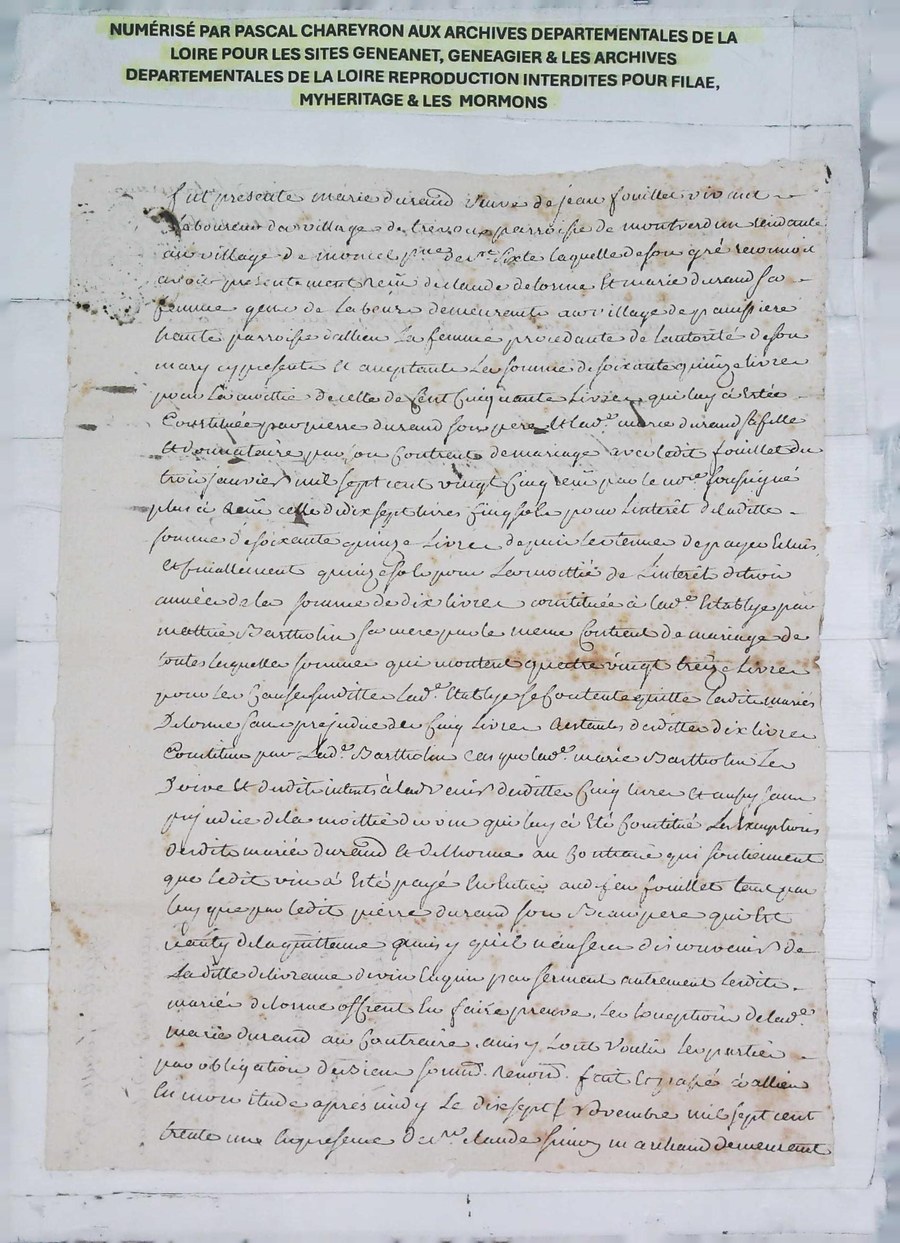 NUMÉRISÉ PAR PASCAL CHAREYRON AUX ARCHIVES DEPARTEMENTALES DE LA
LOIRE POUR LES SITES GENEANET, GENEAGIER & LES ARCHIVES
DEPARTEMENTALES DE LA LOIRE REPRODUCTION INTERDITES POUR FILAE,
MYHERITAGE & LES MORMONS
fut presente marie durand veuve de jean fouillet vivant
laboureur du village de parroisse de montverdun residante
au village de laquelle de son gré reconnoit
avoir presentement reçu de claude delorme et marie durand sa
femme gens de labeur demeurants au village de panissiere
haute parroisse d'allieu la femme procedante de l'autorité de son
mary cy present et acceptante la somme de soixante quinze livres
pour la moitié de celle de cent cinquante livres qui luy a estée
constituée par pierre durand son pere et lad.e marie durand sa fille
et donnataire par son contract de mariage avec ledit fouillet du
trois janvier mil sept cent vingt cinq reçu par le no.re soussigné
plus a reçu celle de dix sept livres cinq sols pour l'interêt de laditte
somme de soixante quinze livres depuis les termes de payer
et finallement quinze sols pour la moittié de l'interêt de trois
année de la somme de dix livres constituée à lad.e establye par
mathie Bartholin sa mere par le meme contract de mariage de
toutes lesquelles sommes qui montent quatre vingt treize livres
pour les causes susdittes lad.e establye se contente quitte lesdits mariés
Delorme sans prejudice de cinq livres restants desdittes dix livres
constitué par lad.e Bartholin en ce que lad.e marie Bartholin les
doive et desdits interests à lad venir desdittes cinq livres et aussy sans
prejudice de la moittié du vin qui luy a eté constitué les exceptions
desdits mariés durand et delhorme au contraire qui soutiennent
que ledit vin a esté payé en entier aud feu fouillet tant par
luy que par ledit pierre durand son beau pere qui est
de la quittance quoiqu'il n'ause disconvenir de
la ditte delivrance de vin en par serment autrement lesdits
mariés delorme offrent en faire preuve, les exceptions de lad.e
marie durand au contraire, ainsy l'ont voulu les parties
par obligation de biens soum. renon. fait et passé à allieu
en mon etude après midy le dix sept novembre mil sept cent
trente un en presence de s.r claude marchand demeurant